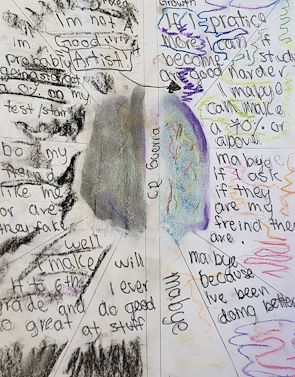 I'm not
good
I'm
probably
Artist!
going to get
0% on my
test/star
bo my
freind
like me
or are
they fake
well
I make
it to 6th
grade and
do great
will
I ever
do good
at stuff
Growth
If I pratice
More I can
become
good
if I study
harder
mabye I
can make
a 70% or
above
mabye
if I ask
if they
are my
freind they
are.
mabye
because
I've been
doing better
mabye